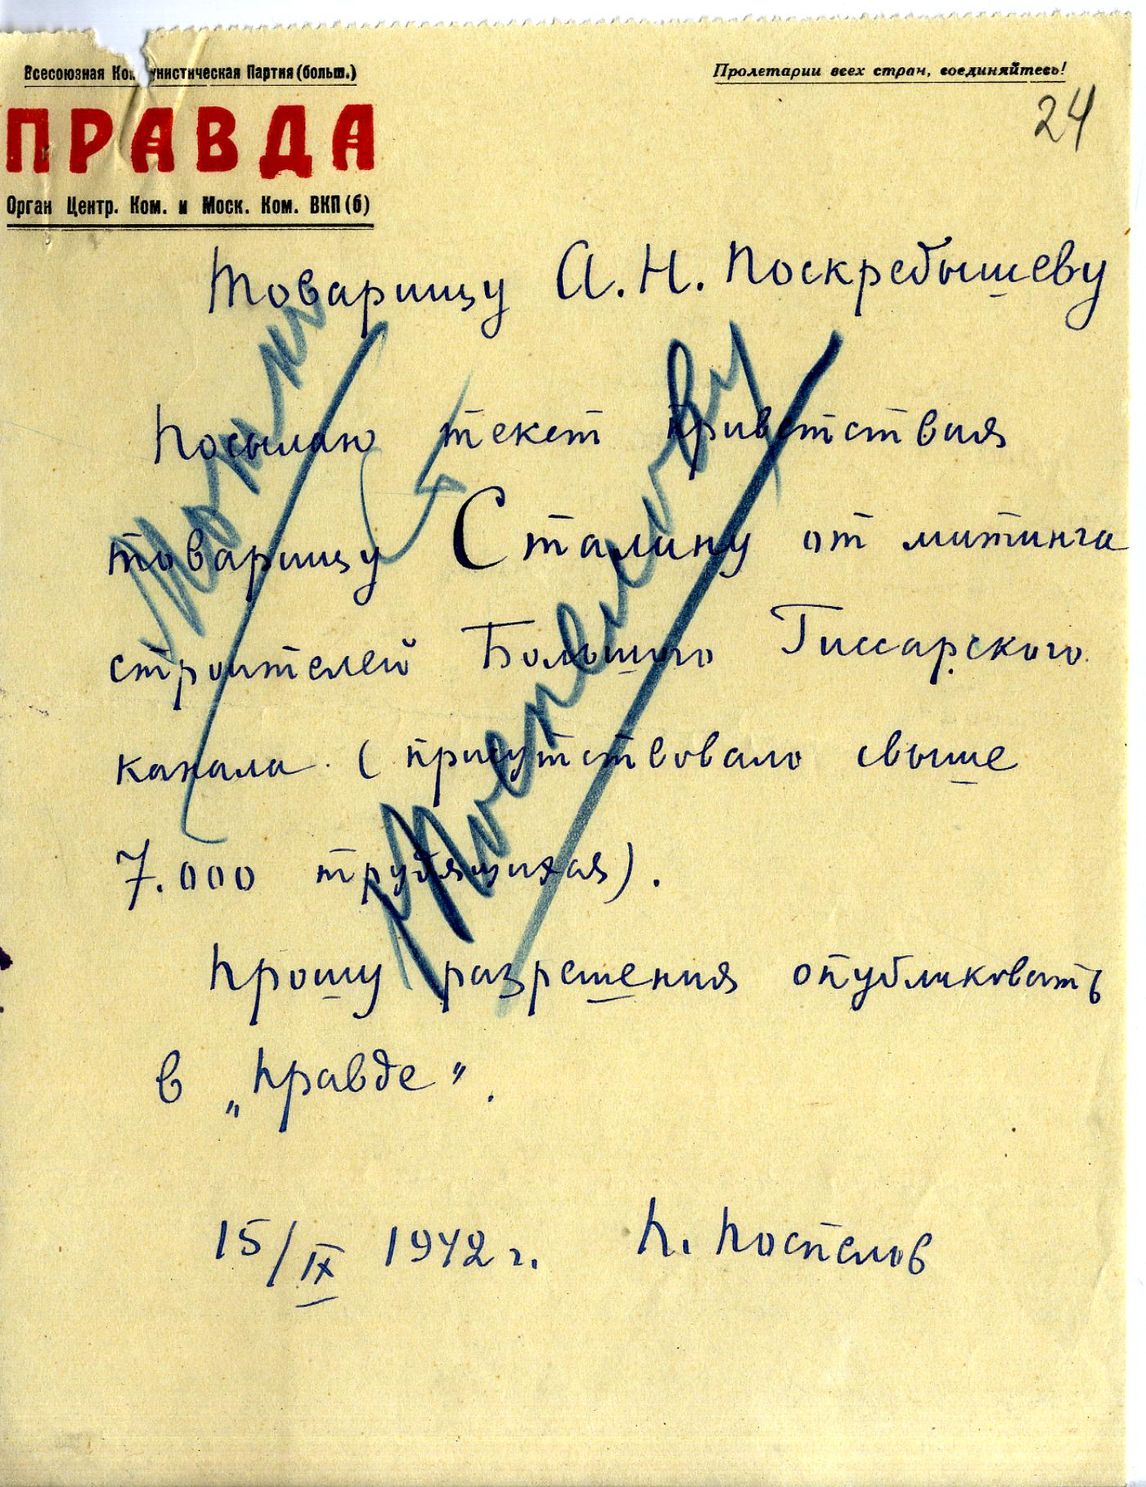 Всесоюзная Коммунистическая Партия (больш.)
Пролетарии всех стран, соединяйтесь!
24
ПРАВДА
Орган Центр. Ком. и Моск. Ком. ВКП(б)
Товарищу А. Н. Поскребышеву
Посылаю текст приветствия
товарищу Сталину от митинга
строителей Большого Гиссарского
канала (присутствовало свыше
7.000 трудящихся).
Прошу разрешения опубликовать
в „Правде".
15/IX 1942 г. П. Поспелов